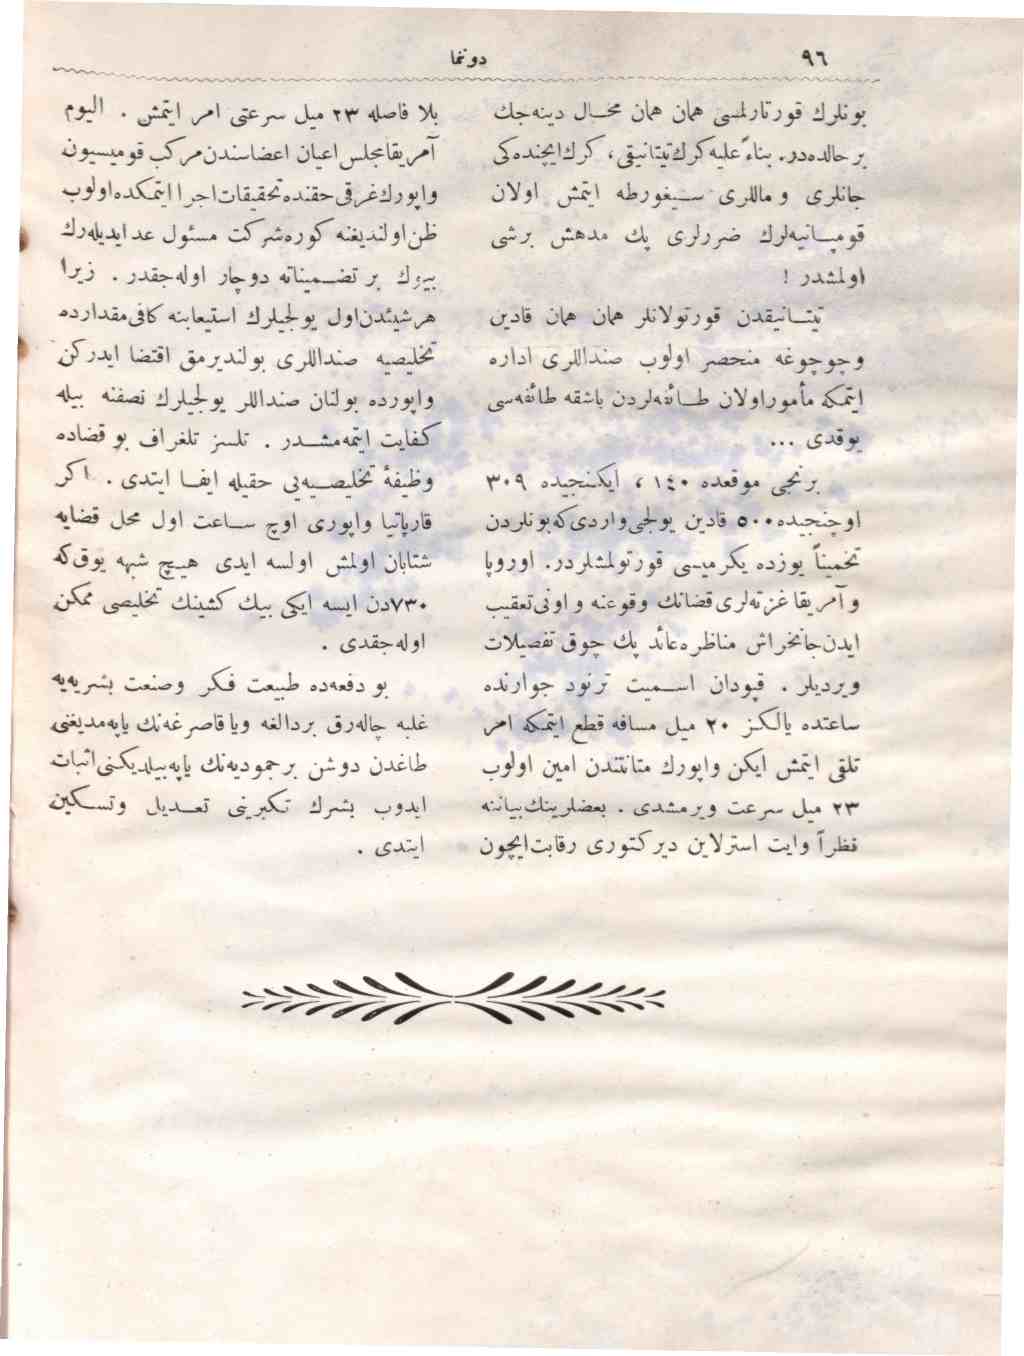 ٩٦
دوننما
بونلرك قورتارلمسی همان همان محــال دینه‌جك
بر حالده‌در. بناءً علیه كرك تیتانیقی، كرك ایچنده‌كی
جانلری و ماللری ســیغورطه ایتمش اولان
قومپــانیه‌لرك ضررلری پك مدهش برشی
اولمشدر !
تیتــانیقدن قورتولانلر همان همان قادین
وچوجوغه منحصر اولوب صنداللری اداره
ایتمكه مأمور اولان طــائفه‌لردن باشقه طائفه‌سی
یوقدی ...
برنجی موقعده ١٤٠ ، ایكنجیده ٣٠٩
اوچنجیده ٥٠٠ قادین یولجی واردی كه بونلردن
تخمیناً یوزده یكرمیسی قورتولمشلردر. اوروپا
و آمریقا غزته‌لری قضانك وقوعنه و اونی تعقیب
ایدن جانخراش مناظره عائد پك چوق تفصیلات
ویردیلر . قپودان اســمیت ترنود جوارنده
ساعتده یالكز ٢٠ میل مسافه قطع ایتمكه امر
تلقی ایتمش ایكن واپورك متانتندن امین اولوب
٢٣ میل سرعت ویرمشدی . بعضلرینك بیاننه
نظراً وایت استرلاین دیركتوری رقابت ایچون
بلا فاصله ٢٣ میل سرعتی امر ایتمش . الیوم
آمریقا مجلس اعیان اعضاسندن مركب قومیسیون
واپورك غرقی حقنده تحقیقات اجرا ایتمكده اولوب
ظن اولندیغنه كوره شركت مسئول عد ایدیله‌رك
بیوك بر تضــمیناته دوچار اوله‌جقدر . زیرا
هرشیئدن اول یولجیلرك استیعابنه كافی مقدارده
تخلیصیه صنداللری بولندیرمق اقتضا ایدركن
واپورده بولنان صنداللر یولجیلرك نصفنه بیله
كفایت ایتمه‌مشــدر . تلسز تلغراف بو قضاده
وظیفهٔ تخلیصــیه‌یی حقیله ایفــا ایتدی . اكر
قارپاتیا واپوری اوچ ســاعت اول محل قضایه
شتابان اولمش اولسه ایدی هیــچ شبهه یوق كه
٧٣٠دن ایسه ایكی بیك كشینك تخلیصی ممكن
اوله‌جقدی .
بو دفعه‌ده طبیعت فكر وصنعت بشریه‌یه
غلبه چاله‌رق بردالغه ویا قاصرغه‌نك یاپه‌مدیغنی
طاغدن دوشن بر جمودیه‌نك یاپه‌بیلدیكنی اثبات
ایدوب بشرك تكبرینی تعــدیل وتســكین
ایتدی .